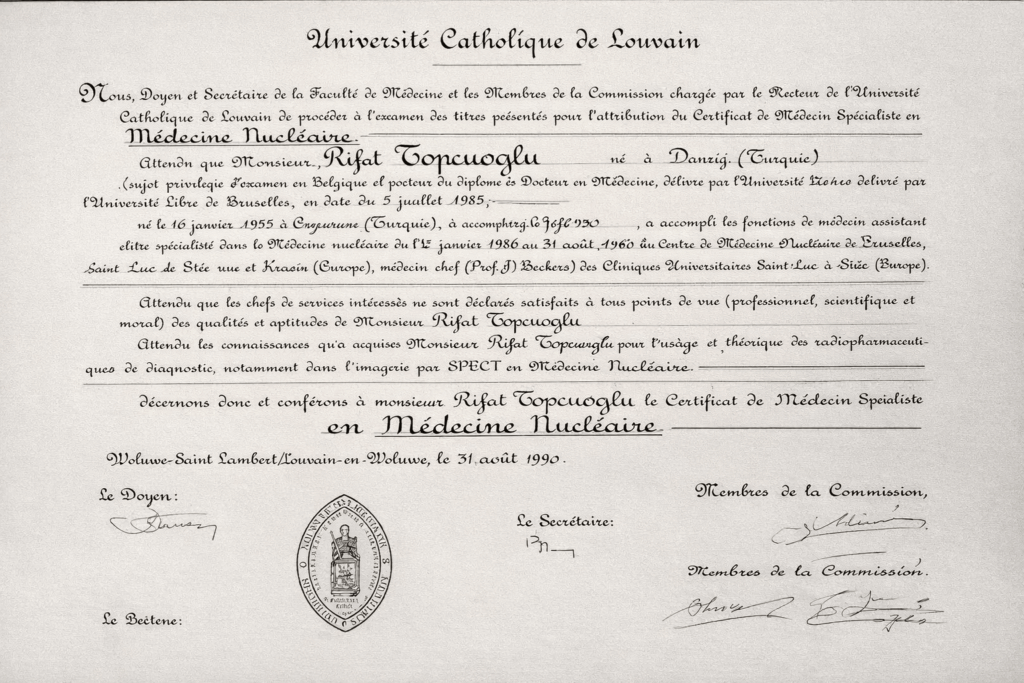 Université Catholique de Louvain
Nous, Doyen et Secrétaire de la Faculté de Médecine et les Membres de la Commission chargée par le Recteur de l'Université
Catholique de Louvain de procéder à l'examen des titres péesentés pour l'attribution du Certificat de Médecin Spécialiste en
Médecine Nucléaire.
Attendn que Monsieur, Rifat Topcuoglu né à Danzig. (Turquie)
(sujot privilegie l'examen en Belgique el pocteur du diplome ès Docteur en Médecine, délivre par l'Université delivré par
l'Université Libre de Bruselles, en date du 5 juullet 1985,
né le 16 janvier 1955 à (Turquie), à , a accompli les fonetions de médecin assistant
elitre spécialisté dans le Médecine nucléaire du 1er janvier 1986 au 31 août, 1960 au Centre de Médecine Nucléaire de Eruselles,
Saint Luc de Stée uue et Krasin (Curope), médecin chef (Prof. J) Beckers) des Cliniques Universitaires Saint-Luc à Siéc (Burope).
Attendu que les chefs de services intécessès ne sont déclarés satisfaits à tous points de vue (professionnel, scientifique et
moral) des qualités et aptitudes de Monsieur Rifat Topcuoglu
Attendu les connaissances qu'a acquises Monsieur Rifat Topcuoglu pour l'usàge et théorique des radiopharmaceuti-
ques de diagnostic, notamment dans l'imagerie par SPECT en Médecine Nucléaire.
décernons donc et conférons à monsieur Rifat Topcuoglu le Certificat de Médecin Speialiste
en Médecine Nucléaire.
Woluwe-Saint Lambert/Louvain-en-Woluwe, le 31 août 1990.
Le Doyen:
Membres de la Commission,
Le Secrétaire:
Membres de la Commission.
Le Bectene: